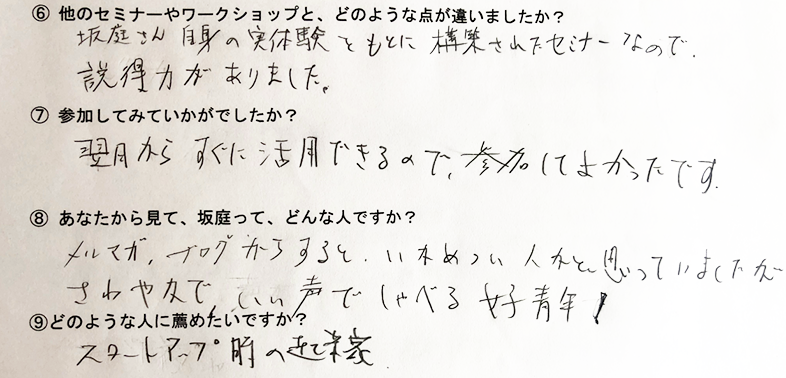 ⑥ 他のセミナーやワークショップと、どのような点が違いましたか？
坂庭さん自身の実体験をもとに構築されたセミナーなので、
説得力がありました。
⑦ 参加してみていかがでしたか？
翌月からすぐに活用できるので、参加してよかったです。
⑧ あなたから見て、坂庭って、どんな人ですか？
メルマガ、ブログからすると、いかめつい人かと思っていましたが
さわやかで、いい声でしゃべる好青年！
⑨どのような人に薦めたいですか？
スタートアップ前の起業家